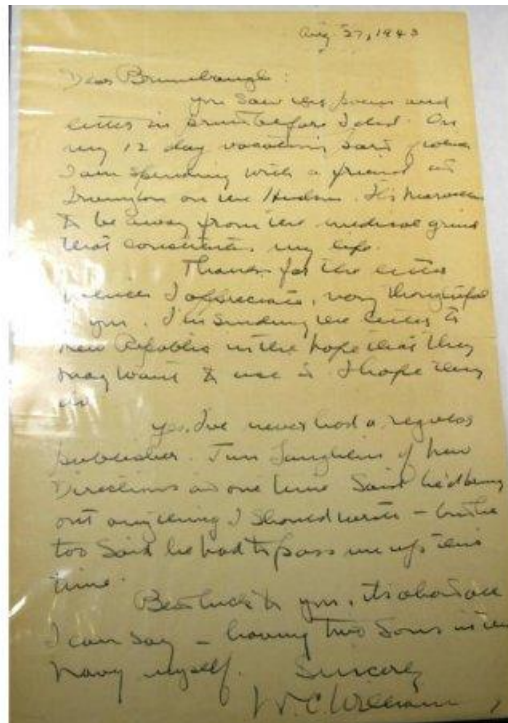 Aug 27, 1943
Dear Brumbaugh:
You saw the poem and
letter in print before I did. On
my 12 day vacation
I am spending with a friend at
Irvington on the Hudson. It's
to be away from the medical grind
that constitutes my life.
Thanks for the letter
which I appreciate, very thoughtful
of you. I'm sending the letter to
New Republic in the hope that they
may want to use it. I hope they
do.
Yes, I've never had a regular
publisher. Jim Laughlin of New
Directions at one time said he'd bring
out anything I should write – but he
too said he had to pass me up this
time.
Best luck to you, it's about all
I can say – having two sons in the
Navy myself. Sincerely
W. C. Williams